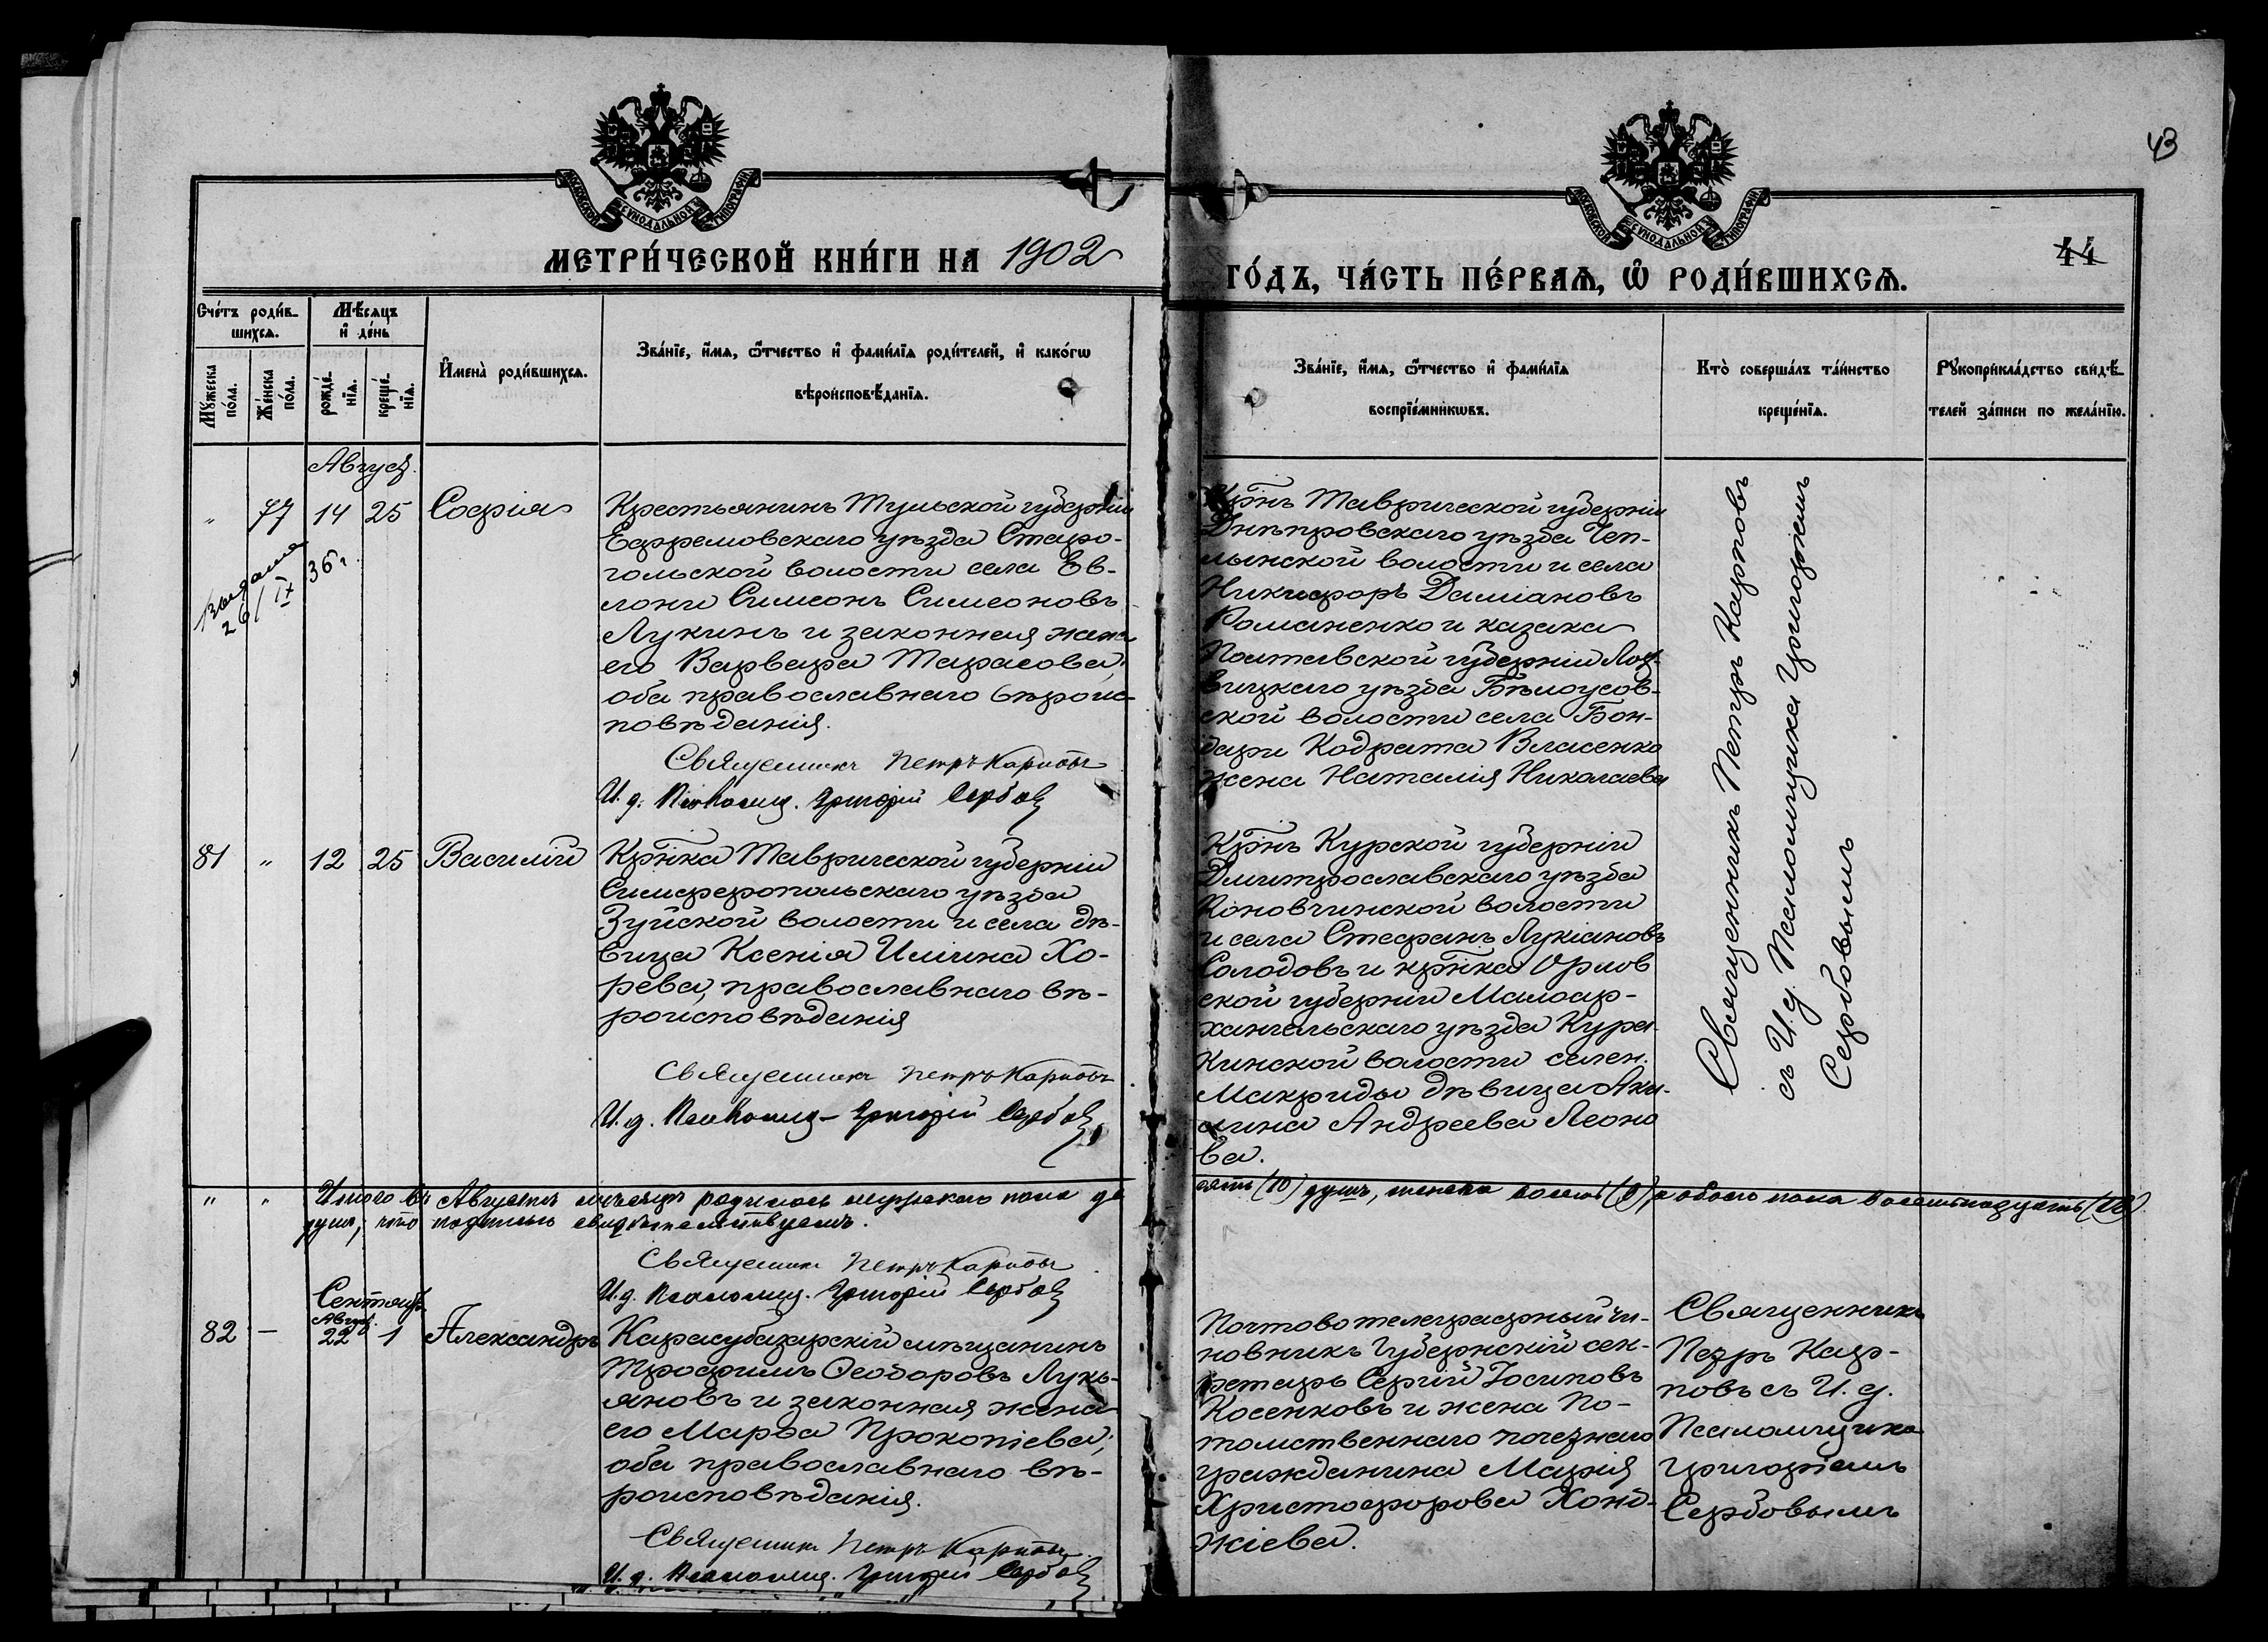 43
МОСКОВСКОЙ СѴНОДАЛЬНОЙ ТИПОГРАФІИ
МОСКОВСКОЙ СѴНОДАЛЬНОЙ ТИПОГРАФІИ
МЕТРИ́ЧЕСКОЙ КНИ́ГИ НА 1902
ГО́ДЪ, ЧА́СТЬ ПЕ́РВАѦ, Ѡ҆ РОДИ́ВШИХСѦ.
44
Сче́тъ роди́в-
шихсѧ.
Мѣ́сѧцъ
и҆ де́нь
Мꙋ́жеска
по́ла.
Же́нска
по́ла.
рожде́-
нїѧ.
креще́-
нїѧ.
И҆мена̀ роди́вшихсѧ.
Зва́нїе, и҆́мѧ, ѻ҆́тчество и҆ фами́лїѧ роди́телей, и҆ како́гѡ
вѣроисповѣ́данїѧ.
Зва́нїе, и҆́мѧ, ѻ҆́тчество и҆ фами́лїѧ
воспрїе́мникѡвъ.
Кто̀ соверша́лъ та́инство
креще́нїѧ.
Рꙋкоприкла́дство свидѣ́-
телей за́писи по жела́нїю.
Август.
" 77 14 25 Софія
26/IX 36 г.
Крестьянинъ Тульской губерніи
Ефремовскаго уѣзда Старо-
гольской волости села Ев-
лони Симеонъ Симеоновъ
Лукинъ и законная жена
его Варвара Тарасова,
оба православнаго вѣроис-
повѣданія.
Священникъ Петръ Карповъ
И. д. Псаломщ. Григорій Сербовъ
Крнъ Таврической губерніи
Днѣпровскаго уѣзда Чап-
лынской волости и села
Никифоръ Даміановъ
Романенко и казака
Полтавской губерніи Лох-
вицкаго уѣзда Бѣлоусов-
ской волости села Бон-
дари Кодрата Власенко
жена Наталія Николаева
Священникъ Петръ Карповъ
съ И. д. Псаломщика Григоріемъ
Сербовымъ
81 " 12 25 Василій
Крнка Таврической губерніи
Симферопольскаго уѣзда
Зуйской волости и села дѣ-
вица Ксенія Иліина Хо-
рева, православнаго вѣ-
роисповѣданія
Священникъ Петръ Карповъ
И. д. Псаломщ. Григорій Сербовъ
Крнъ Курской губерніи
Дмитрославскаго уѣзда
и села Стефанъ Лукіановъ
Солодовъ и крнка Орлов
ской губерніи Малоар-
хангельскаго уѣзда Кура-
кинской волости селен.
Макриды дѣвица Аки-
лина Андреева Леоно
ва.
" " Итого въ Августѣ мѣсяцѣ родилось мужескаго пола де
сять (10) душъ, женска восемь (8), а обоего пола восемнадцать (18)
душъ, что подписью свидѣтельствуемъ.
Священникъ Петръ Карповъ
И. д. Псаломщ. Григорій Сербовъ
Сентябр.
Август.
82 — 22 1 Александръ
Карасубазарскій мѣщанинъ
Трофимъ Ѳеодоровъ Лукь-
яновъ и законная жена
его Марѳа Прокопіева,
оба православнаго вѣ-
роисповѣданія.
Священникъ Петръ Карповъ
И. д. Псаломщ. Григорій Сербовъ
Почтово телеграфный чи-
новникъ Губернскій сек-
ретарь Сергій Іосиповъ
Косенковъ и жена По-
томственнаго почетнаго
гражданина Марія
Христофорова Хонд-
жіева.
Священникъ
Петръ Кар-
повъ съ И. д.
Псаломщика
Григоріемъ
Сербовымъ